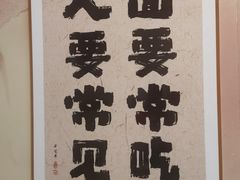 面要常吃
人要常见